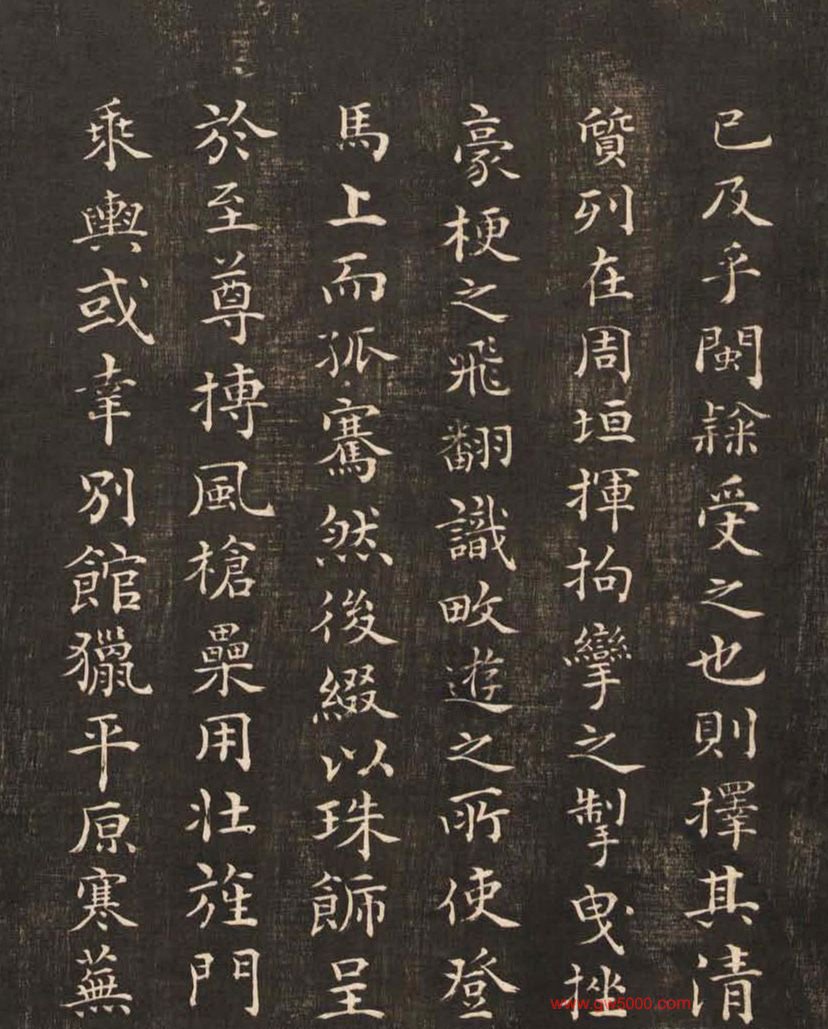 已及乎閩隸受之也則擇其清
質列在周垣揮拘攣之掣曳挫
豪梗之飛翻識畋遊之所使登
馬上而孤騫然後綴以珠飾呈
於至尊搏風槍纍用壯旌門
乘輿或幸別館獵平原寒蕪
www.gw5000.com